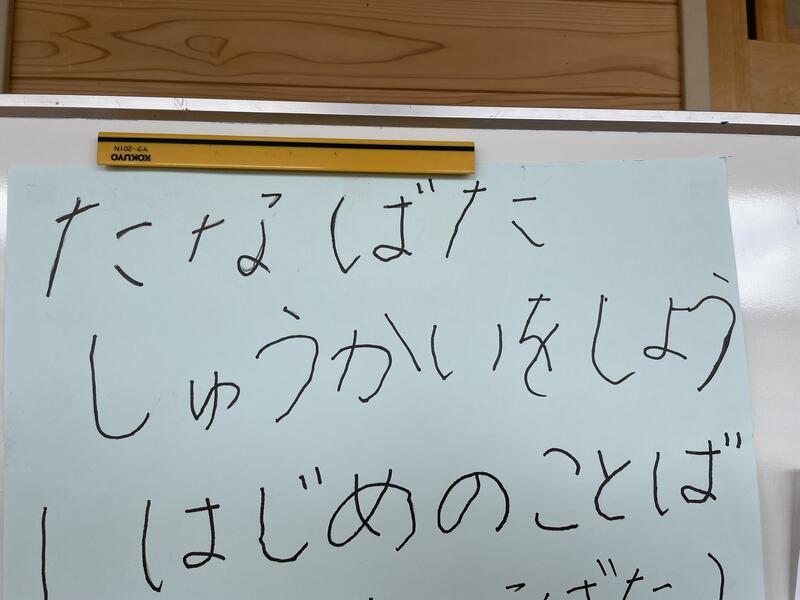 KOKUYO
マク-201N
たなばた
しゅうかいをしよう
1 はじめのことば